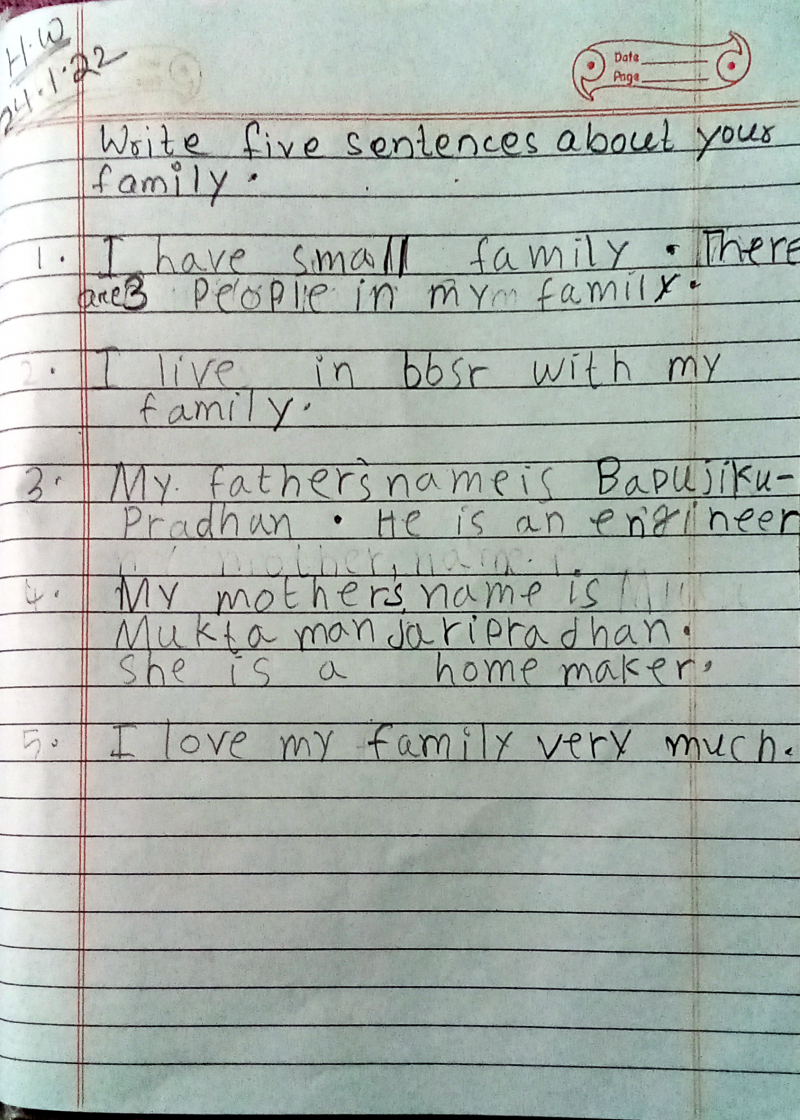 H.W
24.1.22
Date
Page
Write five sentences about your
family.
1. I have small family. There
are 3 people in my family.
2. I live in bbsr with my
family.
3. My father's name is Bapujiku-
Pradhan. He is an engineer
my mother, name i.
4. My mother's name is
Mukta manjaripradhan.
She is a home maker.
5. I love my family very much.